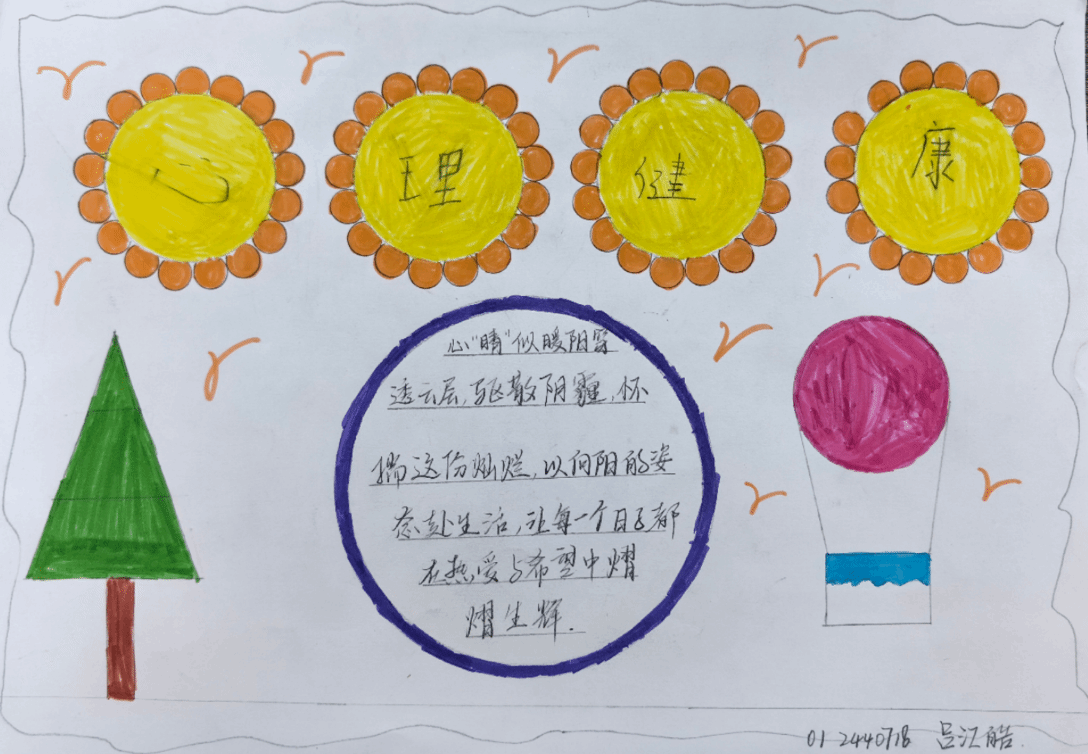 心 理 健 康
心"晴"似暖阳穿
透云层,驱散阴霾,怀
揣这份灿烂,以向阳的姿
态赴生活,让每一个日子都
在热爱与希望中熠
熠生辉.
01 2440718 吕江皓